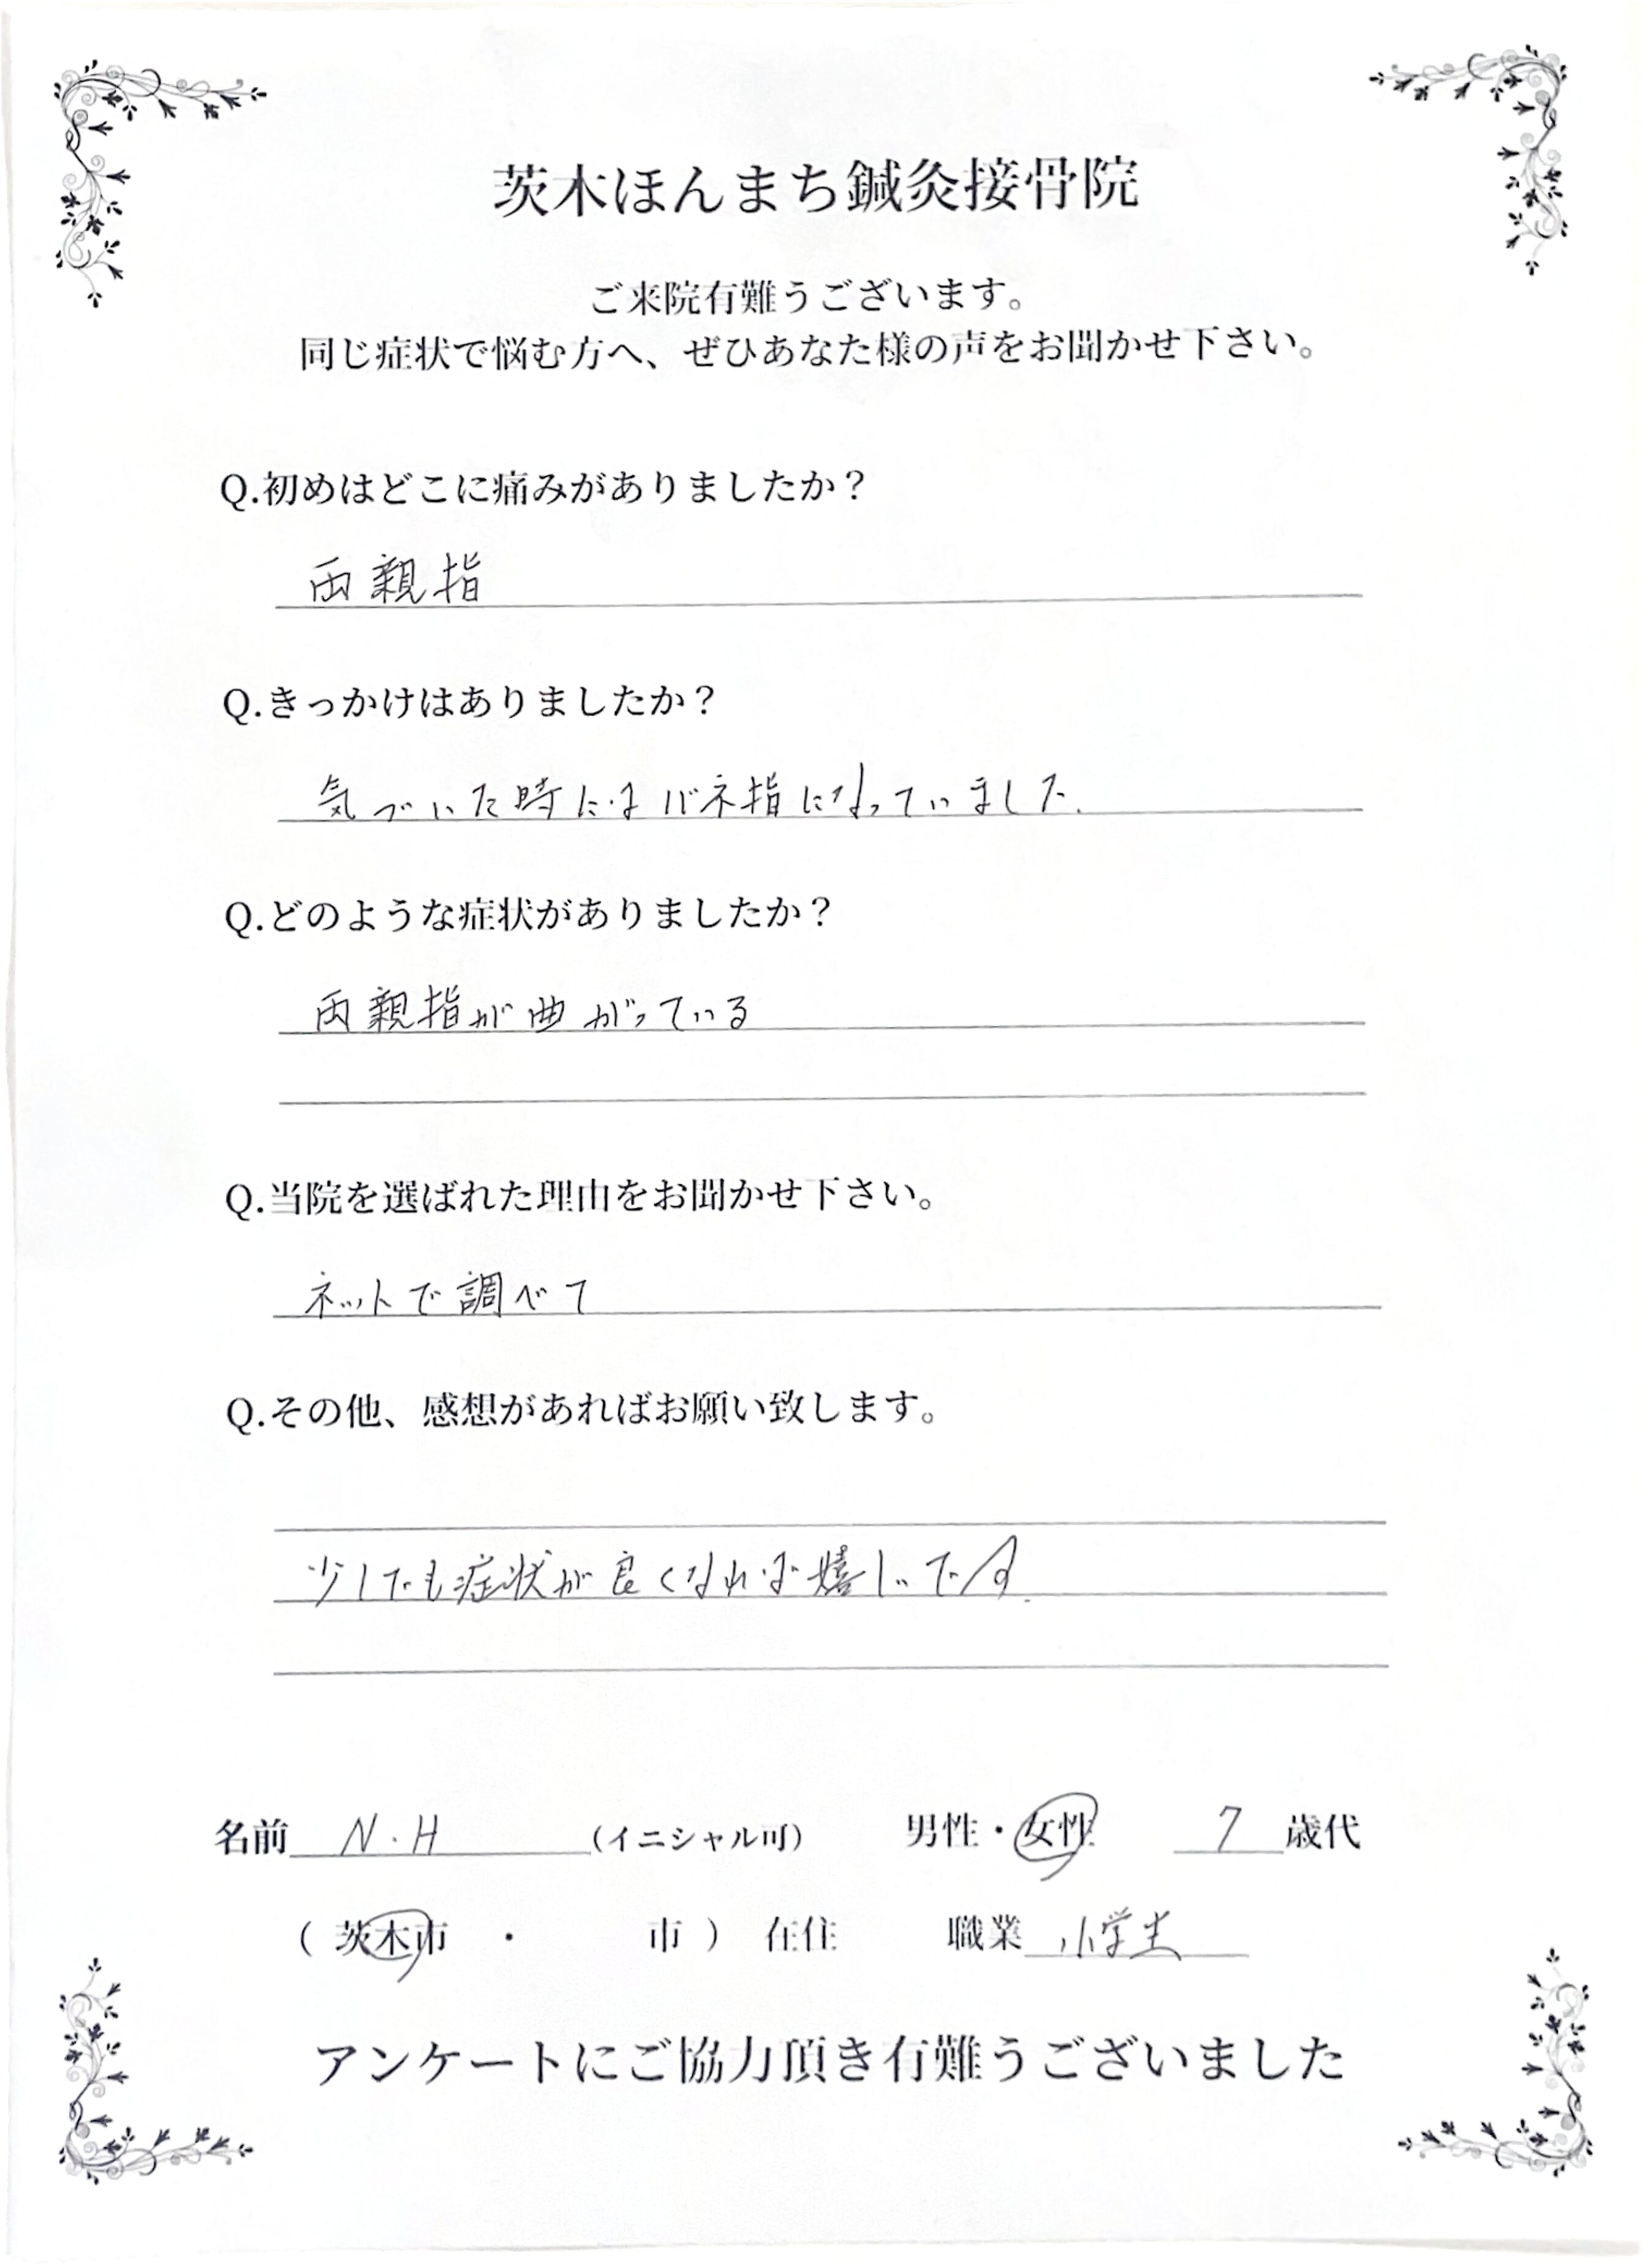 茨木ほんまち鍼灸接骨院
ご来院有難うございます。
同じ症状で悩む方へ、ぜひあなた様の声をお聞かせ下さい。
Q.初めはどこに痛みがありましたか？
両親指
Q.きっかけはありましたか？
気づいた時にはバネ指になっていました.
Q.どのような症状がありましたか？
両親指が曲がっている
Q.当院を選ばれた理由をお聞かせ下さい。
ネットで調べて
Q.その他、感想があればお願い致します。
少しでも症状が良くなれば嬉しいです.
名前 N.H （イニシャル可） 男性・女性 7 歳代
（ 茨木市 ・ 市 ） 在住 職業 小学生
アンケートにご協力頂き有難うございました